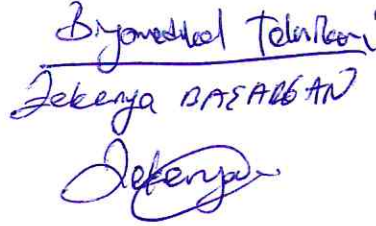 Biyomedikal Teknikeri
Zekeriya BAZARGAN
Zekeriya